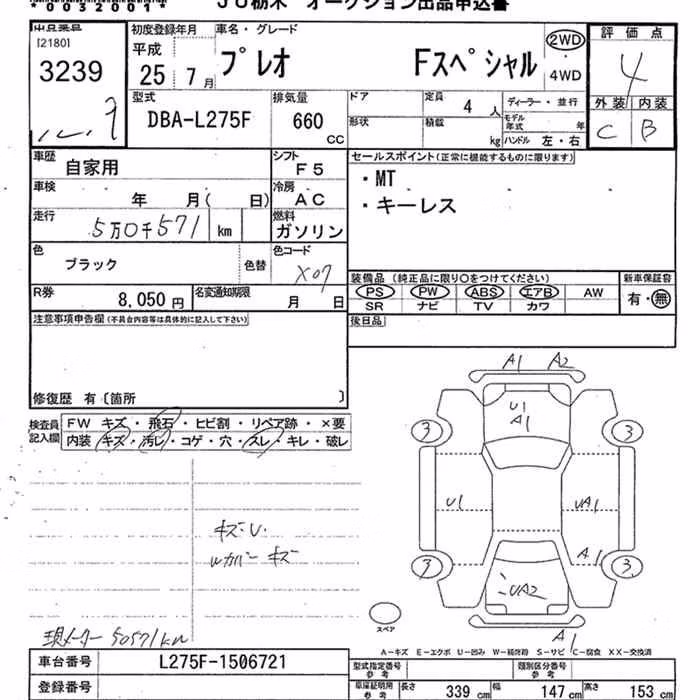 *0032001*
JU栃木 オークション出品申込書
出品番号
[2180]
3239
初度登録年月
平成
25 年 7 月
車名・グレード
プレオ Fスペシャル
2WD
4WD
評価点
4
外装 内装
C B
型式
DBA-L275F
排気量
660 CC
ドア
形状
定員 4 人
積載 kg
ディーラー・並行
モデル年式 年
ハンドル 左・右
車歴
自家用
シフト
F5
車検
年 月( 日)
冷房
AC
走行
5万0千571 km
燃料
ガソリン
色
ブラック
色替
色コード
X07
R券
8,050 円
名変通知期限
月 日
セールスポイント(正常に機能するものに限ります)
・MT
・キーレス
装備品 (純正品に限り○をつけてください)
PS PW ABS エアB AW
SR ナビ TV カワ
新車保証書
有・無
後日品
注意事項申告欄(不具合内容等は具体的に記入して下さい)
修復歴 有〔箇所 〕
検査員記入欄
FW キズ・飛石・ヒビ割・リペア跡・×要
内装 キズ・汚レ・コゲ・穴・スレ・キレ・破レ
キズ・U.
Wカバー キズ
現メーター 50571km
A1 A2
U1
A1
3 3
U1 UA1
A1
3 3
UA2
A1
スペア
A-キズ E-エクボ U-凹み W-補修跡 S-サビ C-腐食 XX-交換済
車台番号
L275F-1506721
登録番号
型式指定番号 参考
類別区分番号 参考
車庫証明用 参考
長さ 339 cm 幅 147 cm 高さ 153 cm